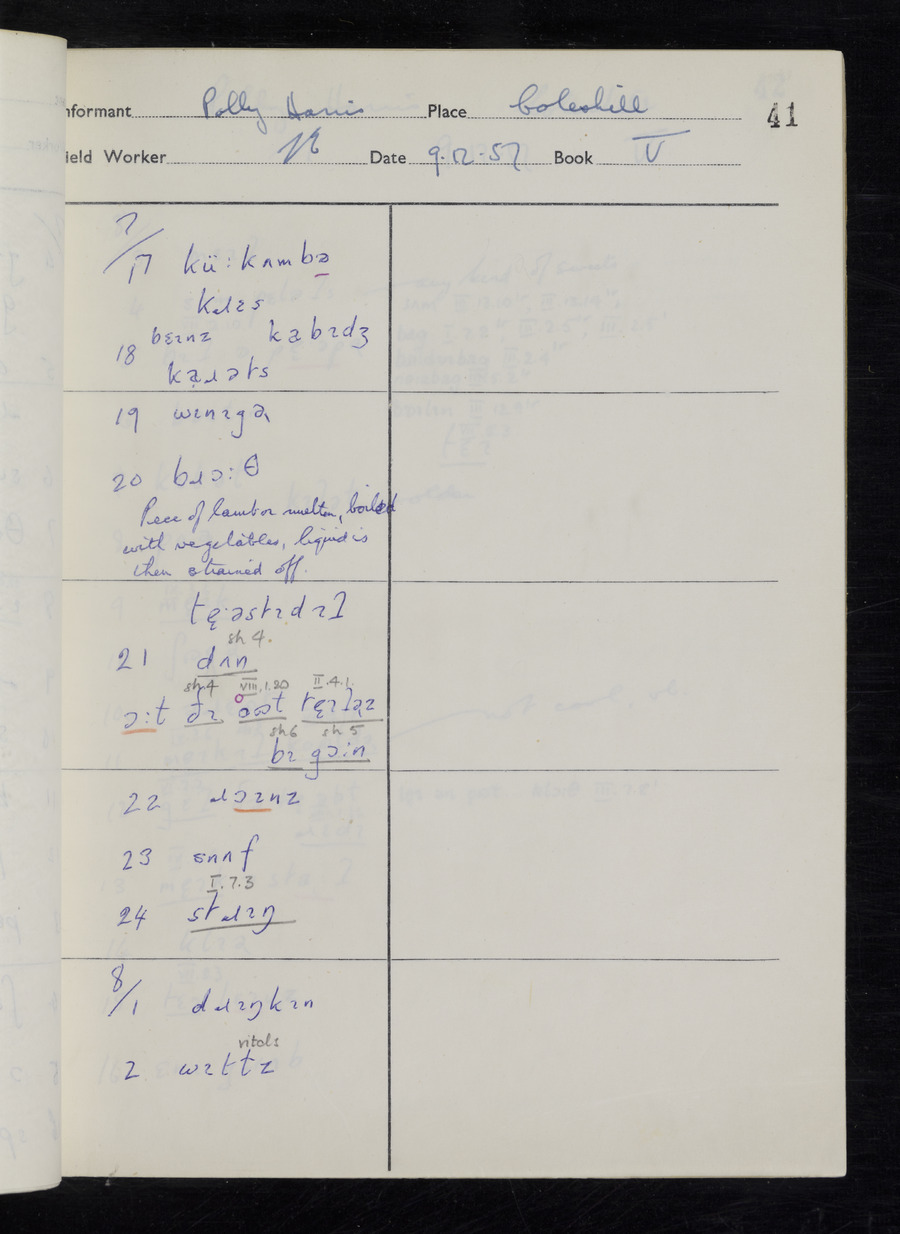 nformant Polly Harris Place Coleshill 41
ield Worker Date 9.12.57 Book V
7/17 kü:kʌmbə
kɹɛs
18 bɛɪnz kabɪdʒ
kaɹəts
19 wɪnɪgə
20 bɹɔ:θ
Piece of lamb or mutton, boiled
with vegetables, liquid is
then strained off.
sh 4.
21 dʌn
sh.4 VIII.1.20 II.4.1.
ɔ:t
sh.6 sh 5
bɪ gɔ:n
22 ɹɔɪnz
23 snʌf
I.7.3
24 stɹɪŋ
8/1 dɹɪŋkɪn
vitols
2 wɪttz